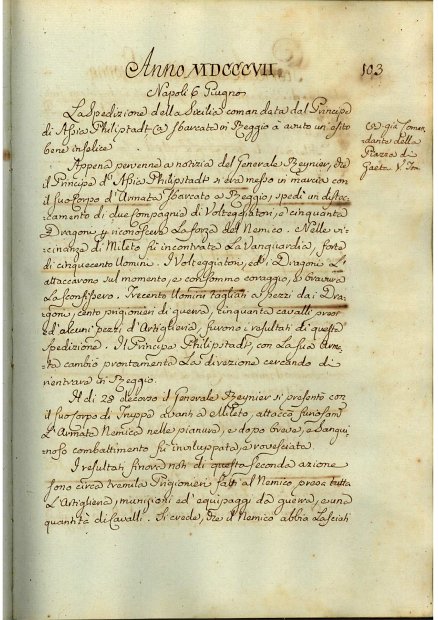 Anno MDCCCVII
103
Napoli 6 Giugno
La Spedizione della Sicilia comandata dal Principe
di Assia Philipstadt (a) sbarcata in Reggio à avuto un esito
bene infelice.
(a) già Coman-
dante della
Piazza di
Gaeta V.
Appena pervenne a notizia del Generale Reynier, che
il Principe d'Assia Philipstadt si era messo in marcia con
il suo Corpo d'Armata sbarcato a Reggio, spedì un distac-
camento di due Compagnie di Volteggiatori, e cinquanta
Dragoni a riconoscere la forza del Nemico. Nelle vi-
cinanze di Mileto fù incontrata la Vanguardia, forte
di cinquecento Uomini. I Volteggiatori, ed i Dragoni l'
attaccarono sul momento, e con sommo coraggio, e bravura
la sconfissero. Trecento Uomini tagliati a pezzi dai Dra-
goni, cento prigionieri di guerra, cinquanta cavalli presi
ed alcuni pezzi d'Artiglieria, furono i resultati di questa
spedizione. Il Principe Philipstadt, con la sua Arma-
ta cambiò prontamente la direzione cercando di
rientrare in Reggio.
Il dì 28 decorso il Generale Reynier si presentò con
il suo Corpo di Truppa avanti a Mileto, attaccò furiosam.
l'Armata Nemica nelle pianure, e dopo breve, e sangui-
noso combattimento fù inviluppata, e rovesciata.
I resultati finora noti di questa seconda azione
sono circa tremila Prigionieri fatti al Nemico, presa tutta
l'Artiglieria, munizioni ed equipaggi da guerra, e una
quantità di Cavalli. Si crede, che il Nemico abbia lasciati